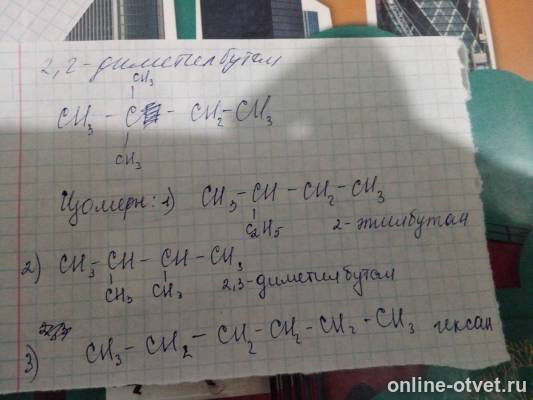 2,2-диметилбутан
CH3
CH3 - C - CH2-CH3
CH3
Изомеры: 1) CH3-CH-CH2-CH3
C2H5
2-этилбутан
2) CH3-CH-CH-CH3
CH3 CH3
2,3-диметилбутан
3) CH3-CH2-CH2-CH2-CH2-CH3 гексан
online-otvet.ru